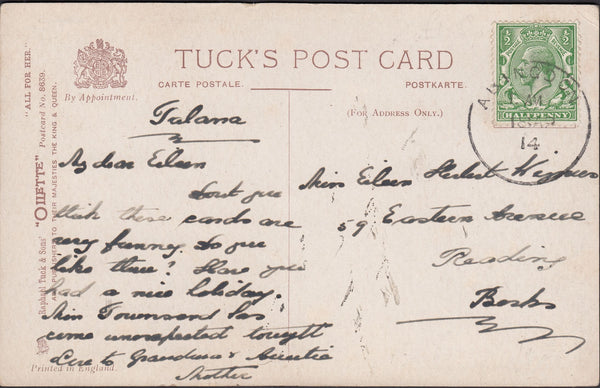 TUCK'S POST CARD
CARTE POSTALE.
POSTKARTE.
By Appointment.
(FOR ADDRESS ONLY.)
"ALL FOR HER."
Raphael Tuck & Sons' "OILETTE" Postcard No. 8639.
ART PUBLISHERS TO THEIR MAJESTIES THE KING & QUEEN.
½ ½
HALFPENNY
AM
14
Talana
My dear Eileen
Dont you
think these cards are
very funny. Do you
like them? Have you
had a nice holiday.
Miss Townsend has
come unexpected tonight
Love to Grandma & Auntie
Mother
Miss Eileen Herbert
59 Eastern Avenue
Reading
Berks
Printed in England.